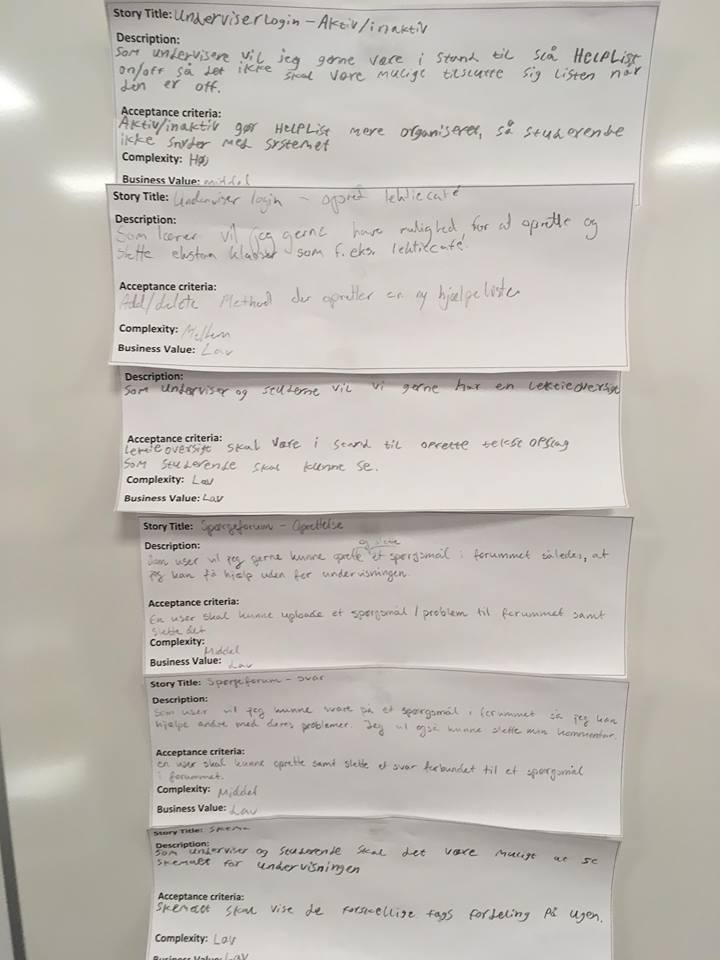 Story Title: Underviser Login - Aktiv/inaktiv
Description:
Som undervisere vil jeg gerne være i stand til slå HelpList
on/off så det ikke skal være mulige tilslutte sig listen når
den er off.
Acceptance criteria:
Aktiv/inaktiv gør HelpList mere organiseret, så studerende
ikke snyder med systemet
Complexity: Høj
Business Value: middel
Story Title: Underviser login - opret lektiecafé
Description:
Som lærer vil jeg gerne have mulighed for at oprette og
slette ekstra klasser som f.eks. lektiecafé.
Acceptance criteria:
Add/delete Method der opretter en ny hjælpeliste
Complexity: Mellem
Business Value: Lav
Description:
Som underviser og studerne vil vi gerne har en lektieoversigt
Acceptance criteria:
lektieoversigt skal være i stand til oprette tekst opslag
som studerende skal kunne se.
Complexity: Lav
Business Value: Lav
Story Title: Spørgeforum - Oprettelse
Description:
og slette
Som user vil jeg gerne kunne oprette et spørgsmål i forummet således, at
jeg kan få hjælp uden for undervisningen.
Acceptance criteria:
En user skal kunne uploade et spørgsmål / problem til forummet samt
slette det
Complexity:
Middel
Business Value: Lav
Story Title: Spørgeforum - svar
Description:
Som user vil jeg kunne svare på et spørgsmål i forummet så jeg kan
hjælpe andre med deres problemer. Jeg vil også kunne slette min kommentar.
Acceptance criteria:
en user skal kunne oprette samt slette et svar forbundet til et spørgsmål
i forummet.
Complexity: Middel
Business Value: Lav
Story Title: Skema
Description:
Som underviser og studerende skal det være muligt at se
skemaet for undervisningen
Acceptance criteria:
Skemaet skal vise de forskellige fags fordeling på ugen.
Complexity: Lav
Business Value: Lav